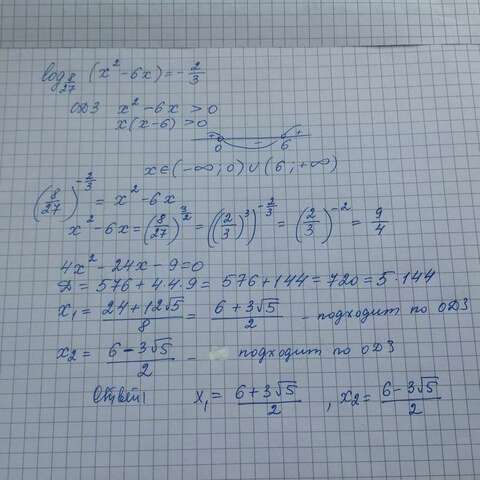 log₈/₂₇ (x² - 6x) = - 2/3
ОДЗ x² - 6x > 0
x(x-6) > 0
+ 0 - 6 +
x ∈ (-∞; 0) ∪ (6; +∞)
(8/27)^(-2/3) = x² - 6x
x² - 6x = (8/27)^(3/2) = ((2/3)³)^(-2/3) = (2/3)^(-2) = 9/4
4x² - 24x - 9 = 0
D = 576 + 4·4·9 = 576 + 144 = 720 = 5·144
x₁ = (24 + 12√5)/8 = (6 + 3√5)/2 - подходит по ОДЗ
x₂ = (6 - 3√5)/2 - подходит по ОДЗ
Ответ: x₁ = (6 + 3√5)/2 , x₂ = (6 - 3√5)/2